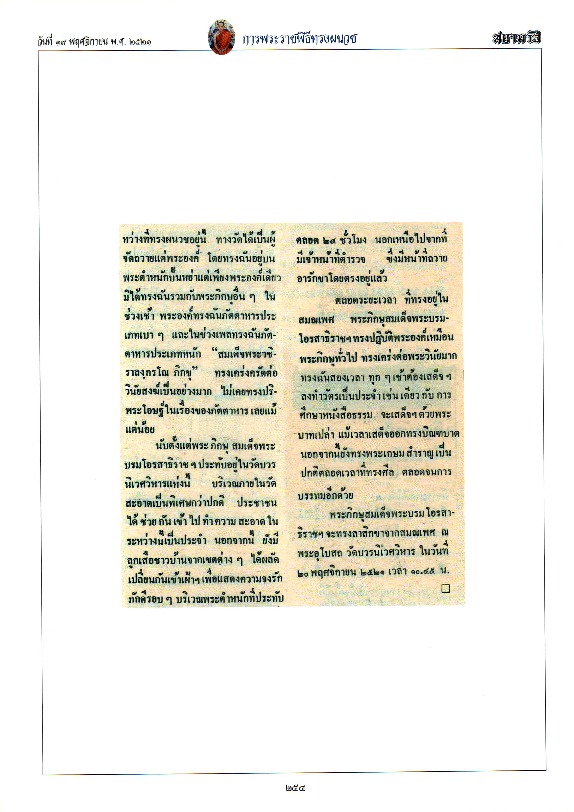 วันที่ ๑๙ พฤศจิกายน พ.ศ. ๒๕๒๑
การพระราชพิธีทรงผนวช
สยามรัฐ
หว่างที่ทรงผนวชอยู่นี้ ทางวัดได้เป็นผู้
จัดถวายแต่พระองค์ โดยทรงฉันอยู่บน
พระตำหนักปั้นหย่าแต่เพียงพระองค์เดียว
มิได้ทรงฉันรวมกับพระภิกษุอื่น ๆ ใน
ช่วงเช้า พระองค์ทรงฉันภัตตาหารประ
เภทเบา ๆ และในช่วงเพลทรงฉันภัต-
ตาหารประเภทหนัก “สมเด็จพระวชิ-
ราลงฺกรโณ ภิกขุ” ทรงเคร่งครัดต่อ
วินัยสงฆ์เป็นอย่างมาก ไม่เคยทรงปริ-
พระโอษฐ์ในเรื่องของภัตตาหาร เลยแม้
แต่น้อย
นับตั้งแต่พระภิกษุ สมเด็จพระ
บรมโอรสาธิราช ฯ ประทับอยู่ในวัดบวร
นิเวศวิหารแห่งนี้ บริเวณภายในวัด
สะอาดเป็นพิเศษกว่าปกติ ประชาชน
ได้ ช่วย กัน เข้า ไป ทำ ความ สะอาด ใน
ระหว่างนี้เป็นประจำ นอกจากนี้ ยังมี
ลูกเสือชาวบ้านจากเขตต่าง ๆ ได้ผลัด
เปลี่ยนกันเข้าเฝ้าฯ เพื่อแสดงความจงรัก
ภักดีรอบ ๆ บริเวณพระตำหนักที่ประทับ
ตลอด ๒๔ ชั่วโมง นอกเหนือไปจากที่
มีเจ้าหน้าที่ตำรวจ ซึ่งมีหน้าที่ถวาย
อารักขาโดยตรงอยู่แล้ว
ตลอดระยะเวลา ที่ทรงอยู่ใน
สมณเพศ พระภิกษุสมเด็จพระบรม-
โอรสาธิราชฯ ทรงปฏิบัติพระองค์เหมือน
พระภิกษุทั่วไป ทรงเคร่งต่อพระวินัยมาก
ทรงฉันสองเวลา ทุก ๆ เช้าต้องเสด็จ ฯ
ลงทำวัตรเป็นประจำ เช่น เดียว กับ การ
ศึกษาหนังสือธรรม จะเสด็จฯ ด้วยพระ
บาทเปล่า แม้เวลาเสด็จออกทรงบิณฑบาต
นอกจากนี้ยังทรงพระเกษม สำราญ เป็น
ปกติตลอดเวลาที่ทรงศีล ตลอดจนการ
บรรทมอีกด้วย
พระภิกษุสมเด็จพระบรม โอรสา-
ธิราชฯ จะทรงลาสิกขาจากสมณเพศ ณ
พระอุโบสถ วัดบวรนิเวศวิหาร ในวันที่
๒๐ พฤศจิกายน ๒๕๒๑ เวลา ๑๐.๔๕ น.
๒๕๔